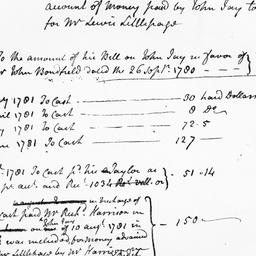 account of money paid by John Jay to
for Mr Lewis Littlepage
To the amount of his Bill on John Jay in favor of
Mr John Bondfield dated the 26 Sept. 1780
y 1781 To Cash 30 hard Dollars
ril 1781 To Cash 8 Do
y 1781 To Cash 72.5
1781 To Cash 127
1781 To Cash pd his Taylor as
pr acct. and Rect. 1034 51-14
in Exchange of
Cash paid Mr Richd Harrison in
on of 10 augt 1781 in 150
was included for money advanced
Mr Littlepage by Mr Harrison